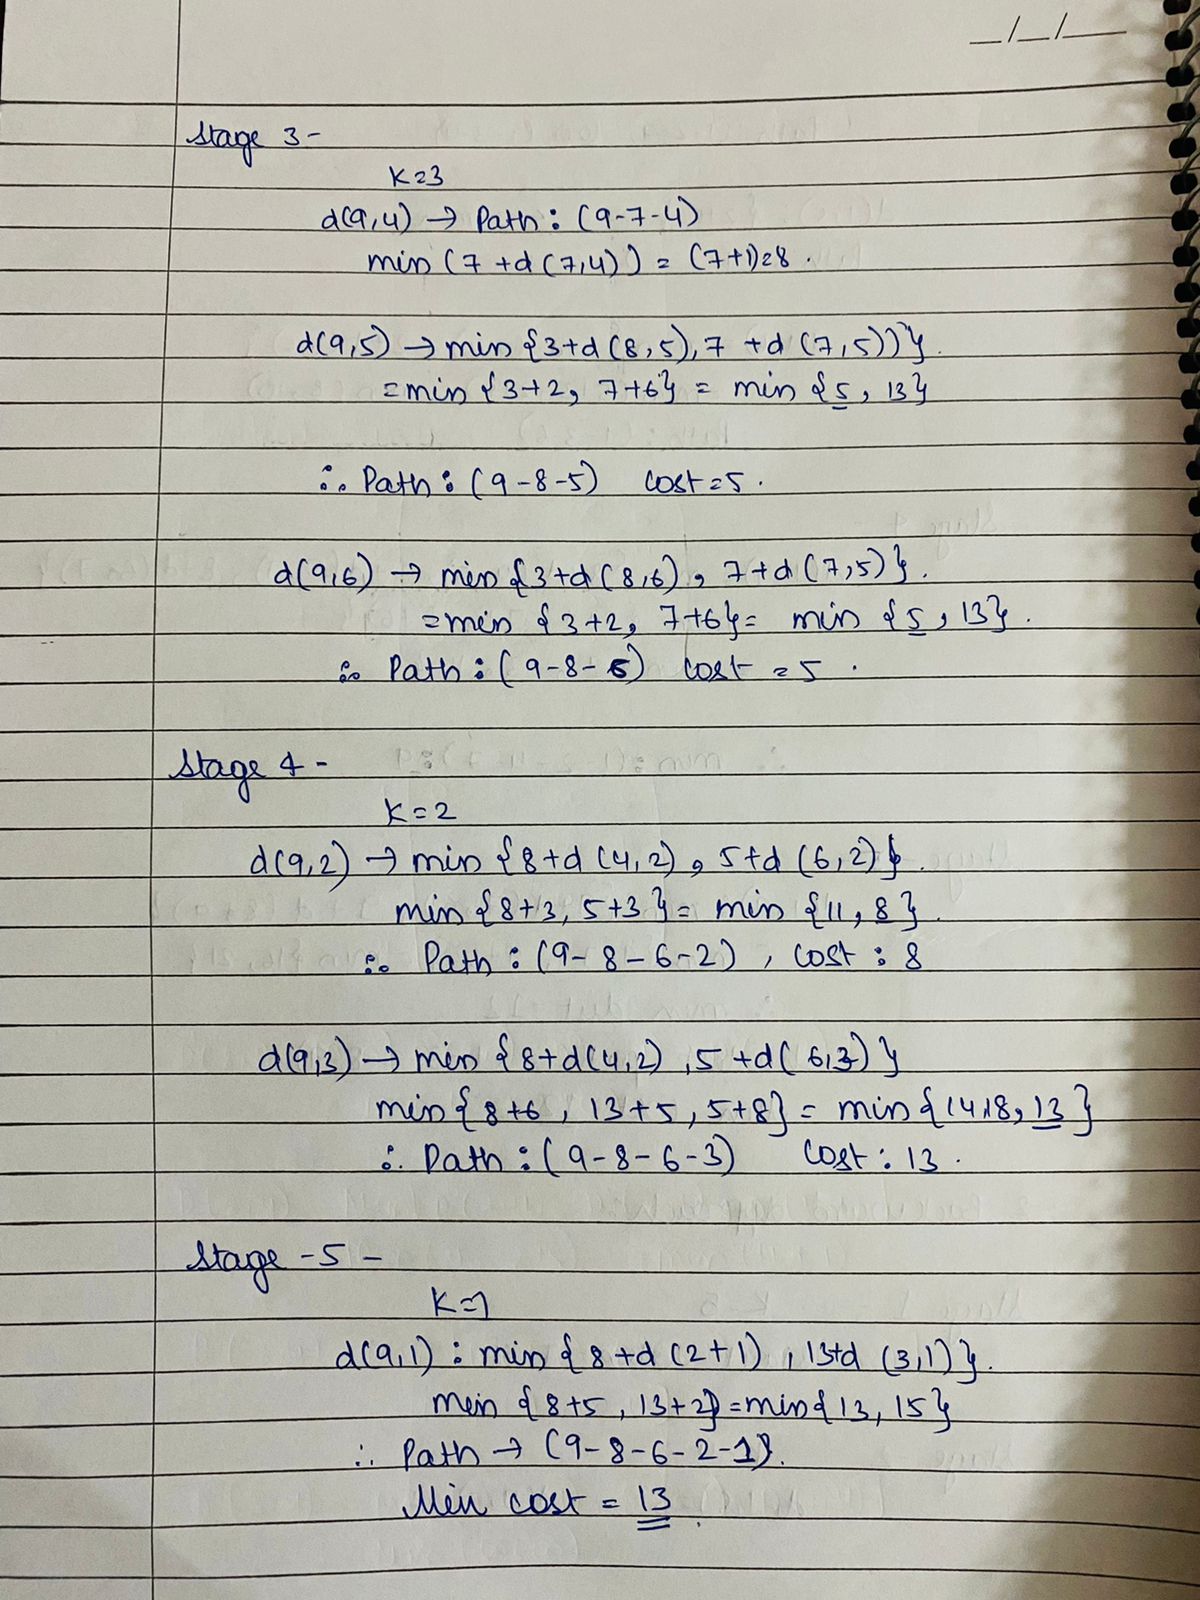 _/_/__
Stage 3 -
K=3
d(9,4) → Path : (9-7-4)
min (7 +d (7,4)) = (7+1)=8 .
d(9,5) → min {3+d(8,5),7 +d(7,5))}.
=min {3+2, 7+6} = min {5, 13}
∴ Path : (9-8-5) cost=5.
d(9,6) → min {3+d(8,6), 7+d(7,5)}.
=min {3+2, 7+6}= min {5, 13}.
∴ Path : (9-8-6) cost =5 .
Stage 4 -
K=2
d(9,2) → min {8+d(4,2), 5+d(6,2)}.
min{8+3, 5+3}= min {11, 8}.
∴ Path : (9-8-6-2) , cost : 8
d(9,3) → min {8+d(4,2) ,5 +d(6,3)}
min{8+6 , 13+5, 5+8}= min{14,18, 13}
∴ Path : (9-8-6-3) cost : 13 .
Stage -5 -
K=1
d(9,1) : min {8+d(2+1) , 13+d (3,1)}.
min {8+5 , 13+2}=min{13, 15}
∴ Path → (9-8-6-2-1).
Min cost = 13 .